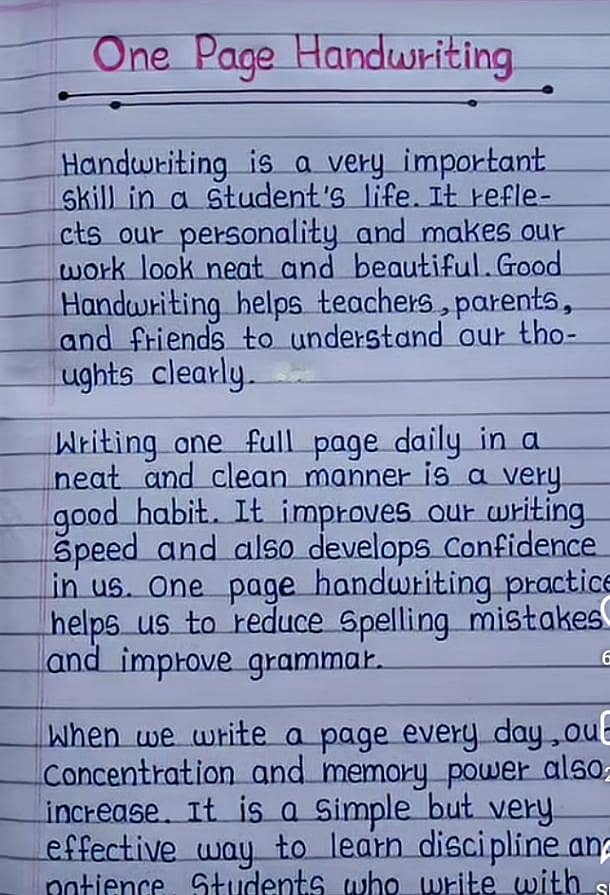 One Page Handwriting
Handwriting is a very important
skill in a student's life. It refle-
cts our personality and makes our
work look neat and beautiful. Good
Handwriting helps teachers, parents,
and friends to understand our tho-
ughts clearly.
Writing one full page daily in a
neat and clean manner is a very
good habit. It improves our writing
speed and also develops confidence
in us. One page handwriting practice
helps us to reduce spelling mistakes
and improve grammar.
When we write a page every day, our
concentration and memory power also
increase. It is a simple but very
effective way to learn discipline and
patience. Students who write with